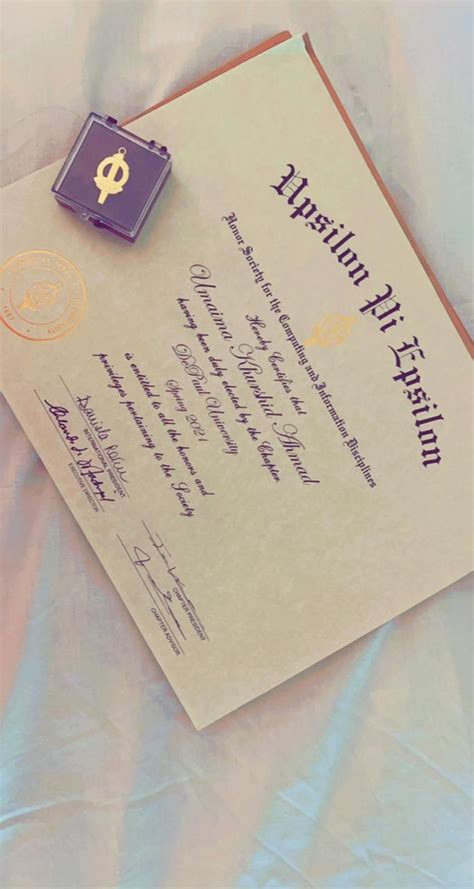 Upsilon Pi Epsilon
Honor Society for the Computing and Information Disciplines
Hereby Certifies that
Umaima Khurshid Ahmad
having been duly elected by the Chapter
DePaul University
Spring 2021
is entitled to all the honors and
privileges pertaining to the Society
INTERNATIONAL PRESIDENT
EXECUTIVE DIRECTOR
CHAPTER PRESIDENT
CHAPTER ADVISOR